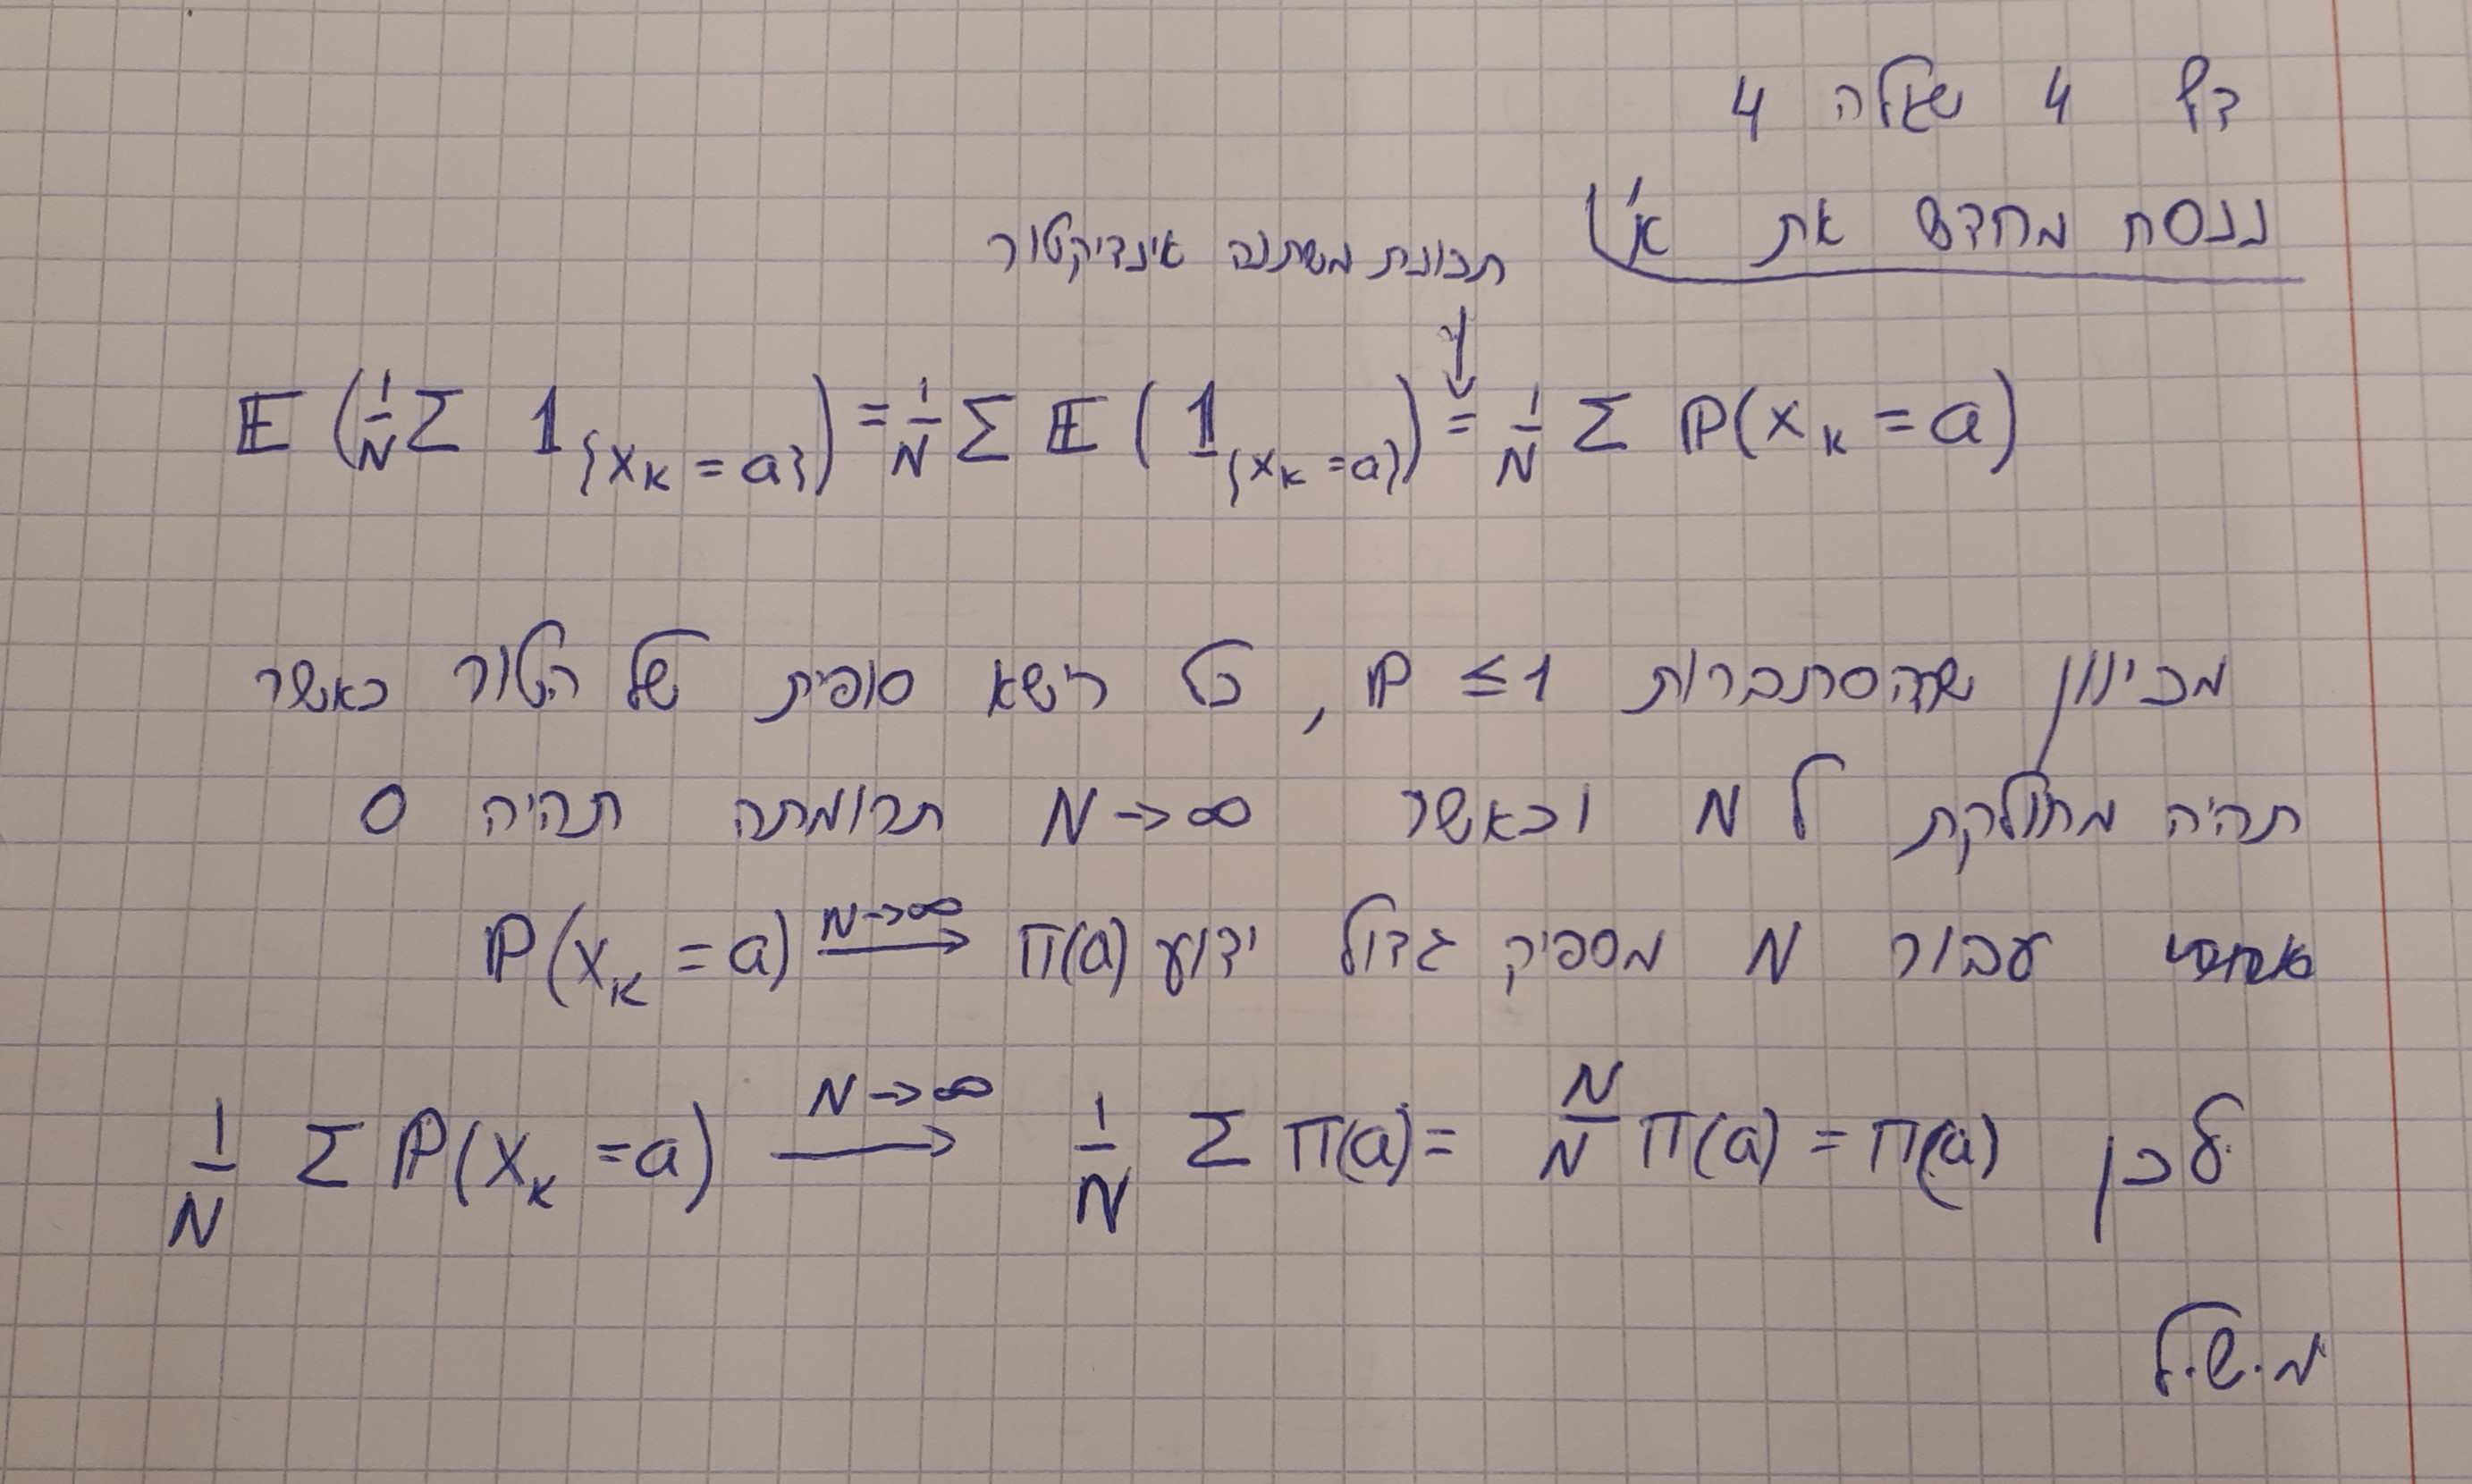 דף 4 שאלה 4
ננסח מחדש את א'
תכונת משתנה אינדיקטור
𝔼(1/N Σ 𝟙_{x_k = a}) = 1/N Σ 𝔼(𝟙_{x_k = a}) = 1/N Σ ℙ(x_k = a)
מכיוון שההסתברות ℙ ≤ 1, כל רישא סופית של הטור כאשר
תהיה מחולקת ל N וכאשר N→∞ תרומתה תהיה 0
עבור N מספיק גדול ידוע ℙ(x_k = a) —N→∞→ π(a)
לכן 1/N Σ ℙ(x_k = a) —N→∞→ 1/N Σ π(a) = N/N π(a) = π(a)
מ.ש.ל